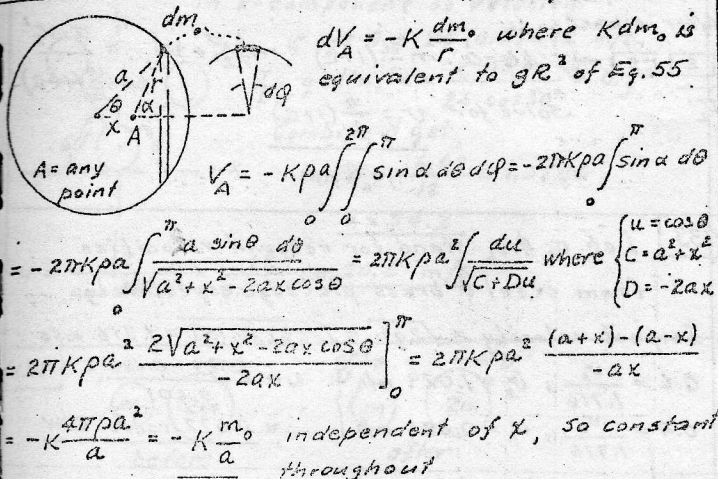 dm₀
dV_A = -K dm₀/r where Kdm₀ is
equivalent to gR² of Eq. 55
a r θ α x A dφ
A = any
point
V_A = -Kρa ∫₀^2π ∫₀^π sin α dθ dφ = -2πKρa ∫₀^π sin α dθ
= -2πKρa ∫₀^π a sin θ dθ / √(a² + x² - 2ax cos θ) = 2πKρa² ∫ du / √(C + Du) where { u = cos θ C = a² + x² D = -2ax
= 2πKρa² 2√(a² + x² - 2ax cos θ) / -2ax ]₀^π = 2πKρa² (a+x) - (a-x) / -ax
= -K 4πρa²/a = -K m₀/a independent of x, so constant
throughout